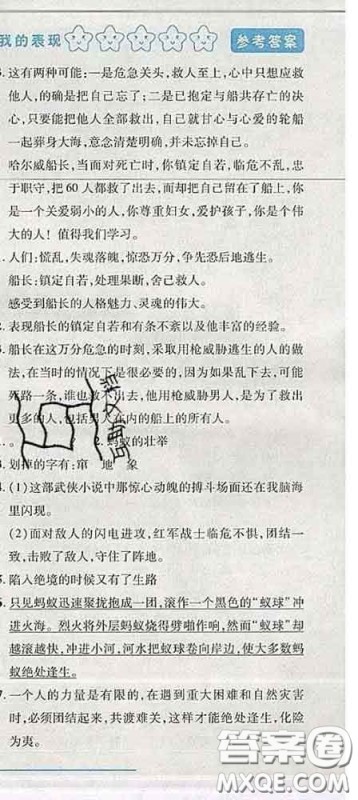 我的表现 参考答案
这有两种可能:一是危急关头,救人至上,心中只想应救
他人,的确是把自己忘了;二是已抱定与船共存亡的决
心,只要能把他人全部救出,自己就甘心与心爱的轮船
一起葬身大海,意念清楚明确,并未忘掉自己。
哈尔威船长,当面对死亡时,你镇定自若,临危不乱,忠
于职守,把 60 人都救了出去,而却把自己留在了船上,你
是一个关爱弱小的人,你尊重妇女,爱护孩子,你是个伟
大的人! 值得我们学习。
人们:慌乱,失魂落魄,惊恐万分,争先恐后地逃生。
船长:镇定自若,处理果断,舍己救人。
感受到船长的人格魅力、灵魂的伟大。
表现船长的镇定自若和有条不紊以及他丰富的经验。
船长在这万分危急的时刻,采取用枪威胁逃生的人的做
法,在当时的情况下是很必要的,因为如果乱下去,可能
死路一条,谁也救不出去,他用枪威胁男人,是为了救出
更多的人,也括男人在内的船上的所有人。
。 2. 蚂蚁的壮举
划掉的字有:窜 地 象
(1)这部武侠小说中那惊心动魄的搏斗场面还在我脑海
里闪现。
(2)面对敌人的闪电进攻,红军战士临危不惧,团结一
致,击败了敌人,守住了阵地。
陷入绝境的时候又有了生路
只见蚂蚁迅速聚拢抱成一团,滚作一个黑色的“蚁球”冲
进火海。烈火将外层蚂蚁烧得劈啪作响,然而“蚁球”却
越滚越快,冲进小河,河水把蚁球卷向岸边,使大多数蚂
蚁绝处逢生。
一个人的力量是有限的,在遇到重大困难和自然灾害
时,必须团结起来,共渡难关,这样才能绝处逢生,化险
为夷。
答案圈
MXQE.COM